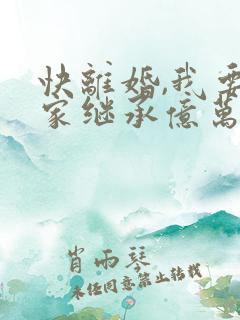 快離婚,我要
家继承億萬
肖雨琴
未任同意禁止转载